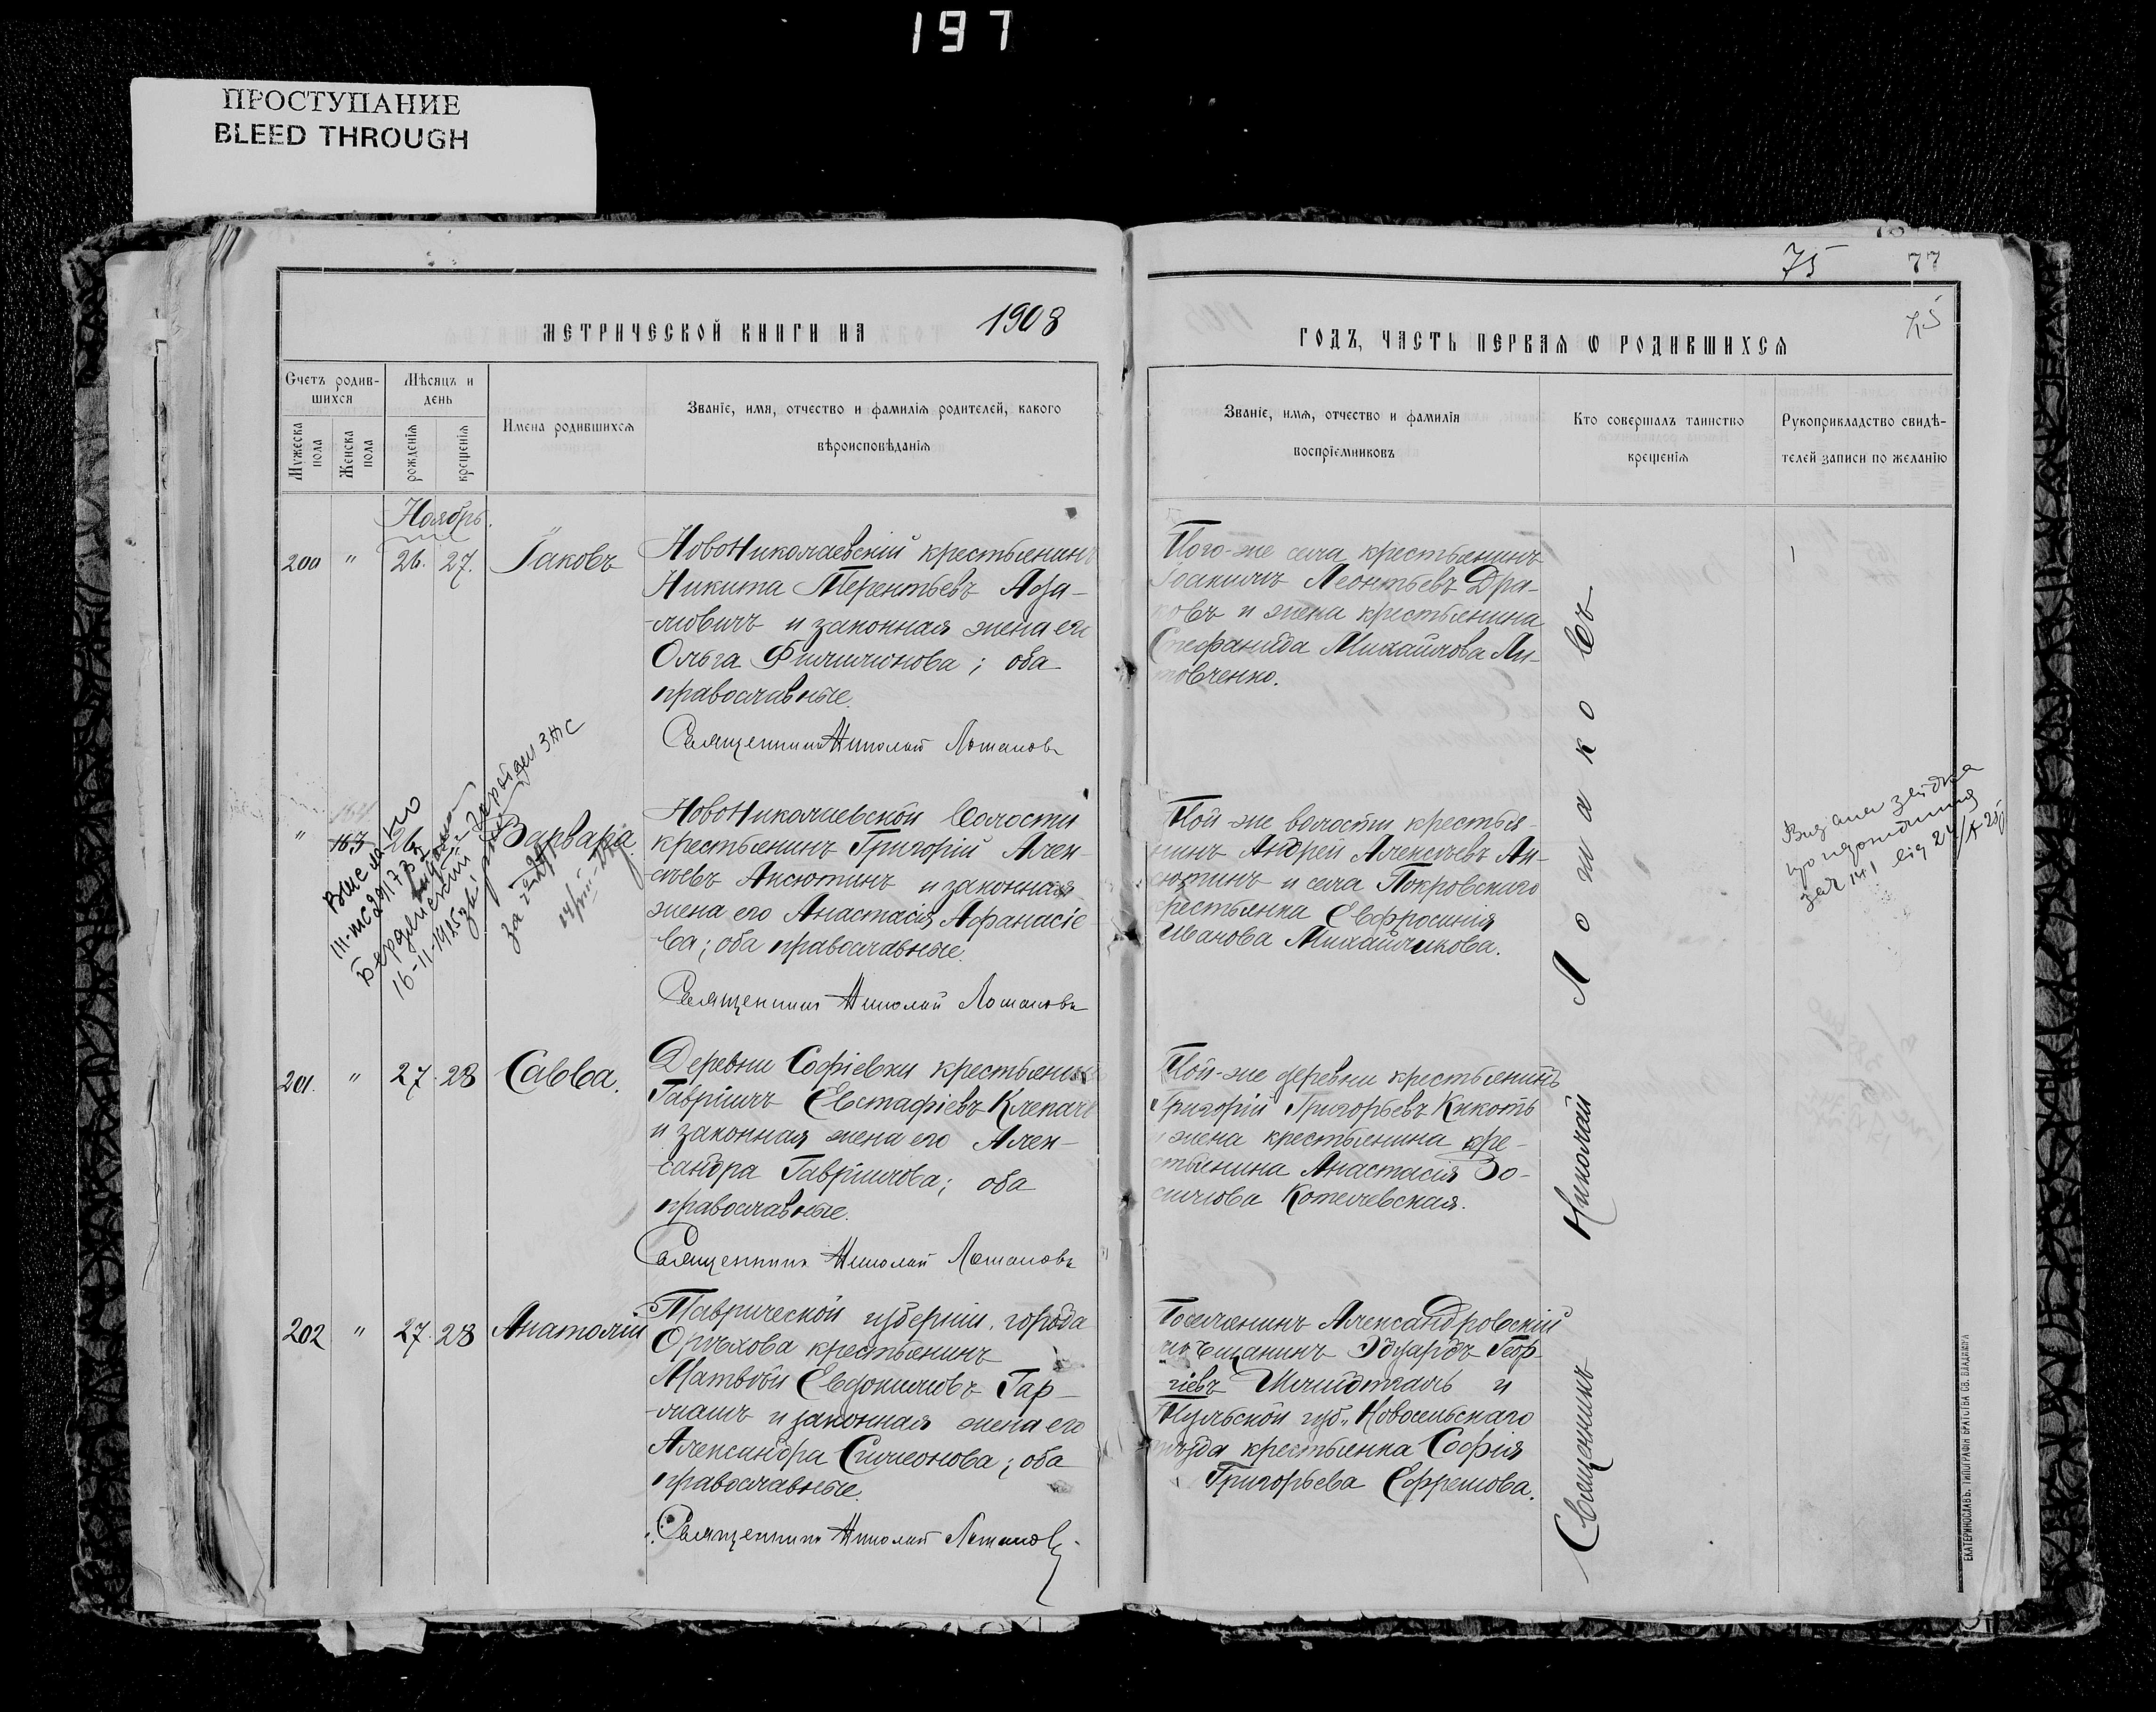 197
ПРОСТУПАНИЕ
BLEED THROUGH
75
77
75
МЕТРИЧЕСКОЙ КНИГИ НА 1908
ГОДЪ, ЧАСТЬ ПЕРВАЯ Ѡ РОДИВШИХСЯ
Счетъ родив-
шихся
Мужеска
пола
Женска
пола
Мѣсяцъ и
день
рожденія
крещенія
Имена родившихся
Званіе, имя, отчество и фамилія родителей, какого
вѣроисповѣданія
Званіе, имя, отчество и фамилія
воспріемниковъ
Кто совершалъ таинство
крещенія
Рукоприкладство свидѣ-
телей записи по желанію
Ноябрь.
200 " 26. 27. Іаковъ
НовоНиколаевскій крестьянинъ
Никита Терентьевъ Ада-
мовичъ и законная жена его
Ольга Филимонова; оба
православные.
Священникъ Николай Лошаковъ
Того-же села крестьянинъ
Іоакимъ Леонтьевъ Дра-
ковъ и жена крестьянина
Стефанида Михайлова Ли-
товченко.
" 163 26 Варвара
НовоНиколаевской волости
крестьянинъ Григорій Алек-
сѣевъ Аксютинъ и законная
жена его Анастасія Афанасіе-
ва; оба православные.
Священникъ Николай Лошаковъ
Той-же волости крестья-
нинъ Андрей Алексѣевъ Ак-
сютинъ и села Покровскаго
крестьянка Евфросинія
Иванова Михайликова.
16-11-1915
201. " 27. 28 Савва.
Деревни Софіевки крестьянинъ
Гавріилъ Евстафіевъ Клепачъ
и законная жена его Алек-
сандра Гавріилова; оба
православные.
Священникъ Николай Лошаковъ
Той-же деревни крестьянинъ
Григорій Григорьевъ Кикоть
и жена крестьянина кре-
стьянина Анастасія Зо-
симова Котелевская.
202 " 27. 28 Анатолій
Таврической губерніи, города
Орѣхова крестьянинъ
Матвѣй Евдокимовъ Гар-
машъ и законная жена его
Александра Симеонова; оба
православные.
Священникъ Николай Лошаковъ
Поселянинъ Александровскій
мѣщанинъ Эдуардъ Геор-
гіевъ и
Тульской губ., Новосильскаго
уѣзда крестьянка Софія
Григорьева Ефремова.
Священникъ Николай Лошаковъ
ЕКАТЕРИНОСЛАВЪ. ТИПОГРАФІЯ БРАТСТВА СВ. ВЛАДИМІРА